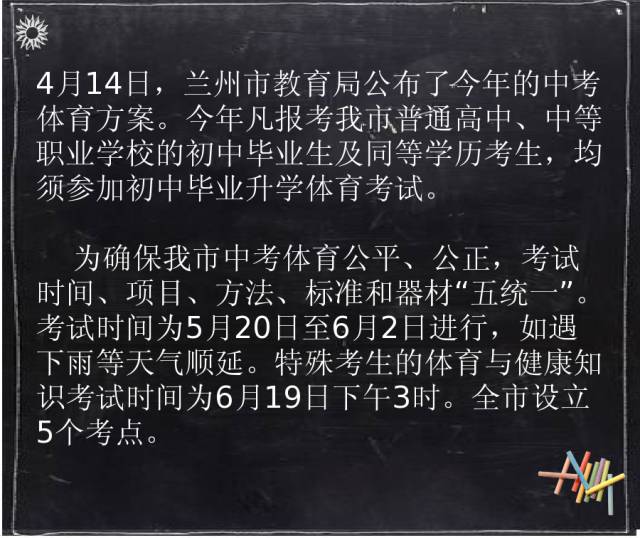 4月14日，兰州市教育局公布了今年的中考
体育方案。今年凡报考我市普通高中、中等
职业学校的初中毕业生及同等学历考生，均
须参加初中毕业升学体育考试。
为确保我市中考体育公平、公正，考试
时间、项目、方法、标准和器材“五统一”。
考试时间为5月20日至6月2日进行，如遇
下雨等天气顺延。特殊考生的体育与健康知
识考试时间为6月19日下午3时。全市设立
5个考点。